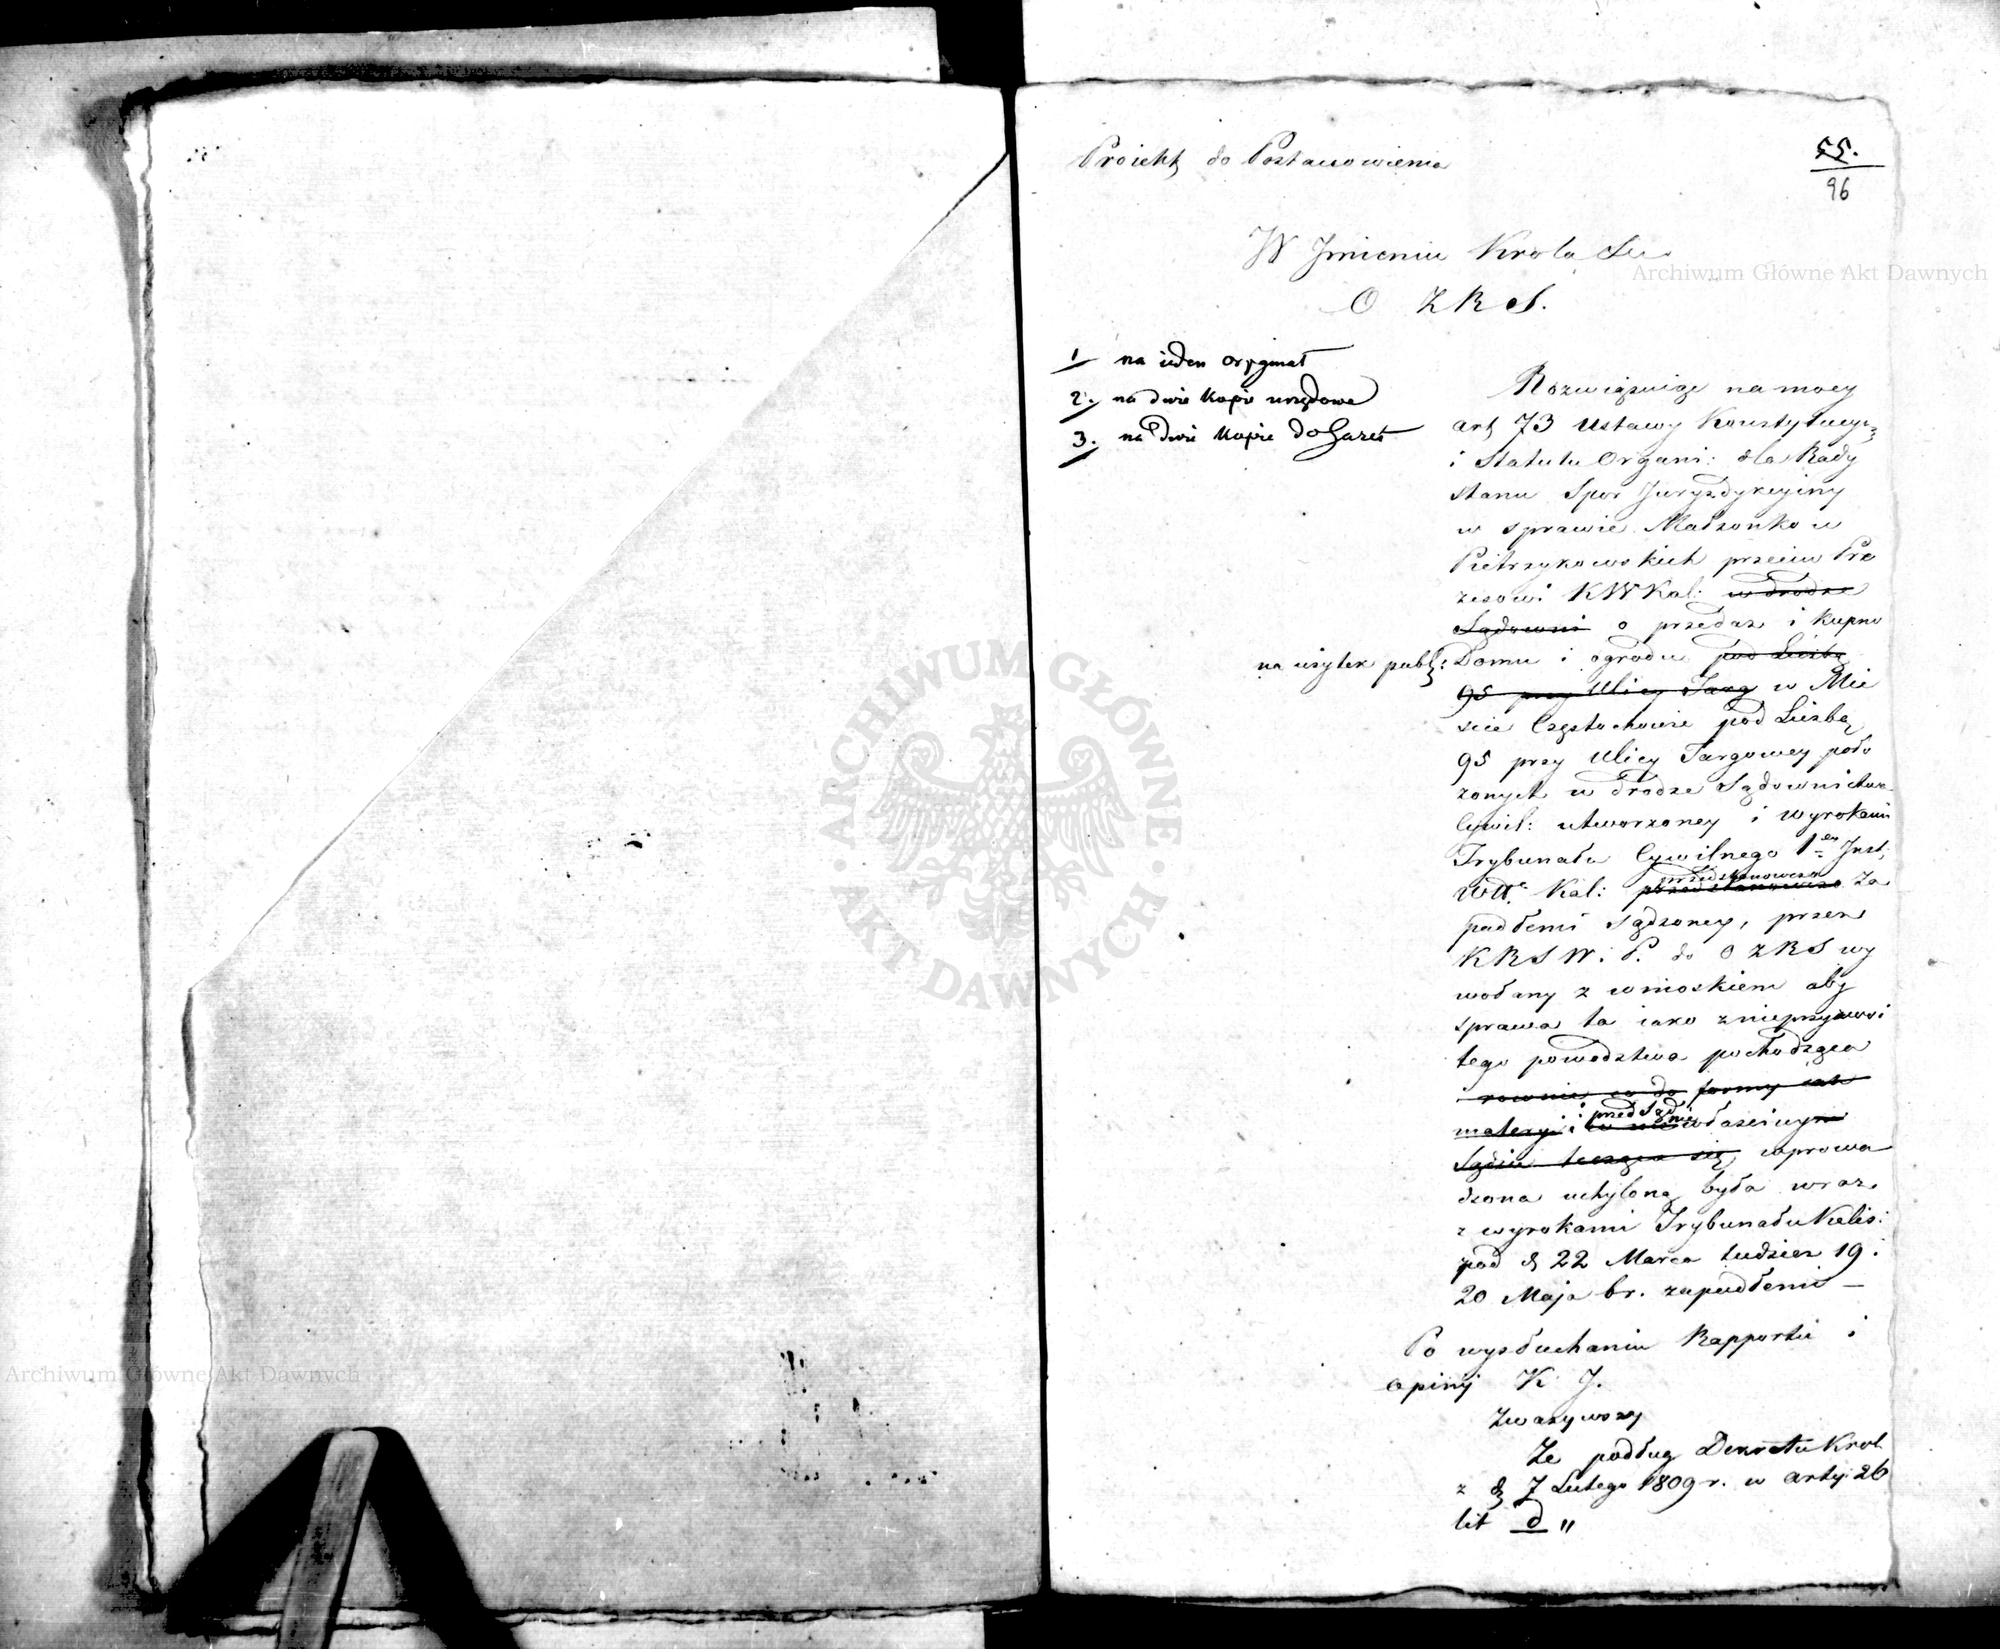 Proiekt do Postanowienia
55.
96
W Jmieniu Krola &c
O Z R S.
1 na ieden oryginał
2. na dwie kopie urzędowe
3. na dwie kopie do Gazet
Rozwiązuiąc na mocy
art 73 Ustawy Konstytucyi:
i Statutu Organi: dla Rady
Stanu Spor Juryzdykcyiny
w sprawie Małżonkow
Pietrzykowskich przeciw Pre
zesowi KWKal: w drodze
Sądowni o przedaż i kupno
na użytek publ: Domu i ogrodu pod Liczbą
95 przy Ulicy Targ w Mie
ście Częstochowie pod Liczbą
95 przy Ulicy Targowey poło
żonych w drodze Sądownictwa
Cywil: utworzoney i wyrokami
Trybunału Cywilnego 1ey Inst:
Wdt. Kal: przedstanowczo przedstanowczo za
padłemi sądzoney, przez
KRSW. i P. do O Z R S wy
wołany z wnioskiem aby
sprawa ta iako z nieprzyzwoi
tego powodztwa pochodząca
i rownie co do formy iak
materyi i w nie właściwym
i przed Sąd nie
Sądzie tocząca się, wprowa
dzona uchyloną była wraz
z wyrokami Trybunału Kalis:
pod d 22 Marca tudzież 19 i
20 Maja br. zapadłemi —
Po wysłuchaniu Rapportu i
opinij K J.
Zważywszy
Że podług Dekretu Krol
z d 7 Lutego 1809 r. w arty: 26
lit d "
Archiwum Główne Akt Dawnych
Archiwum Główne Akt Dawnych
ARCHIWUM GŁÓWNE · AKT DAWNYCH ·